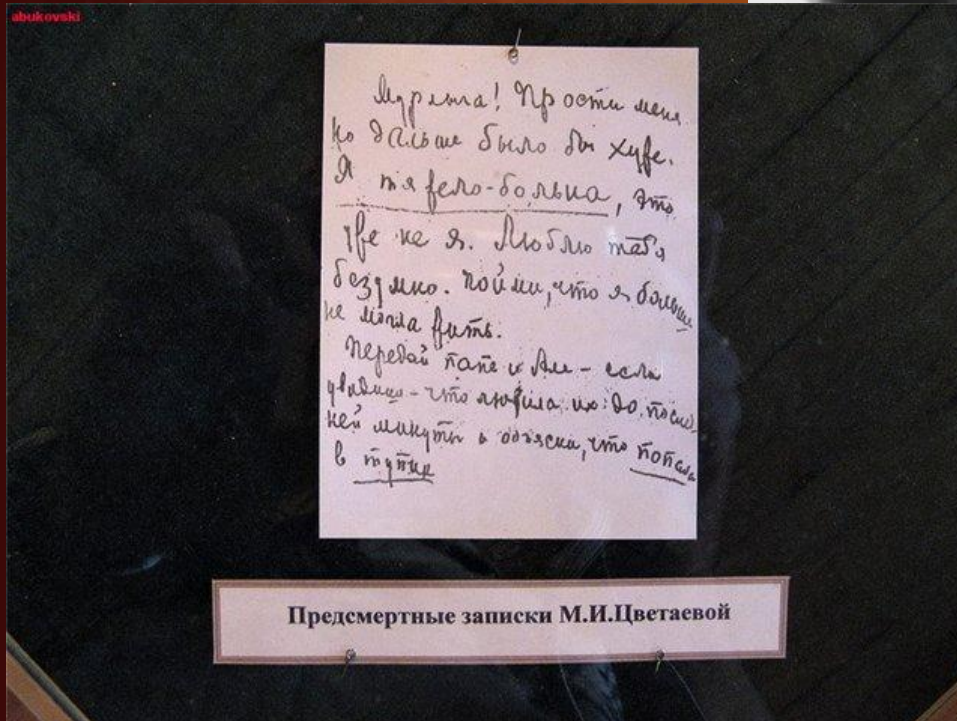 abukovski
Мурлыга! Прости меня
но дальше было бы хуже.
Я тяжело-больна, это
уже не я. Люблю тебя
безумно. Пойми, что я больше
не могла жить.
Передай папе и Але – если
увидишь – что любила их до послед
ней минуты и объясни, что попала
в тупик
Предсмертные записки М.И.Цветаевой